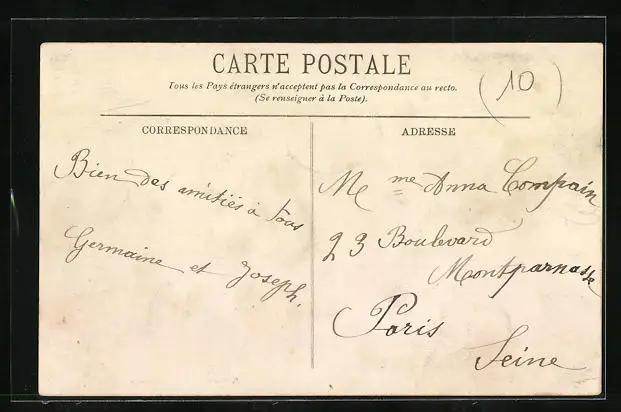 CARTE POSTALE
Tous les Pays étrangers n'acceptent pas la Correspondance au recto.
(Se renseigner à la Poste).
(10)
CORRESPONDANCE
Bien des amitiés à tous
Germaine et Joseph.
ADRESSE
Mme Anna Compain
23 Boulevard
Montparnasse
Paris
Seine